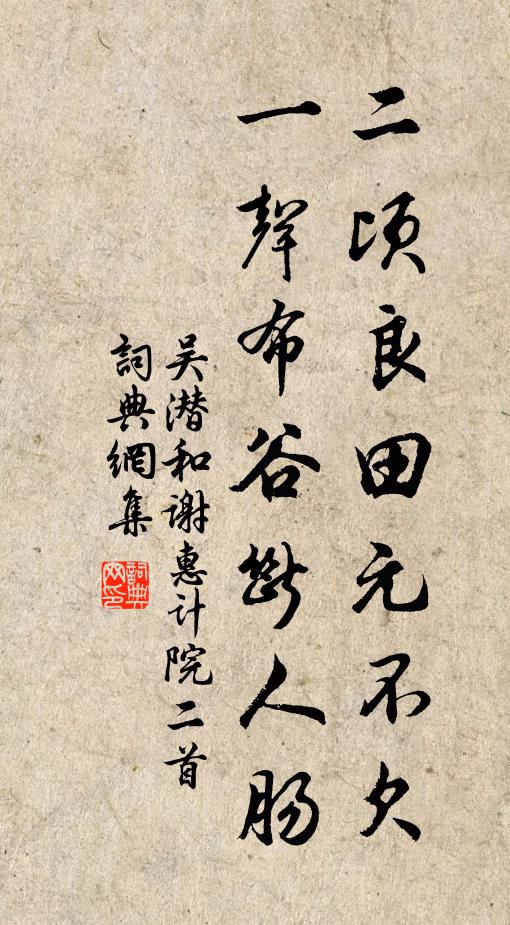 二頃良田元不欠
一聲布谷斷人腸
吴潜和谢惠计院二首
詞典網集
詞典网印